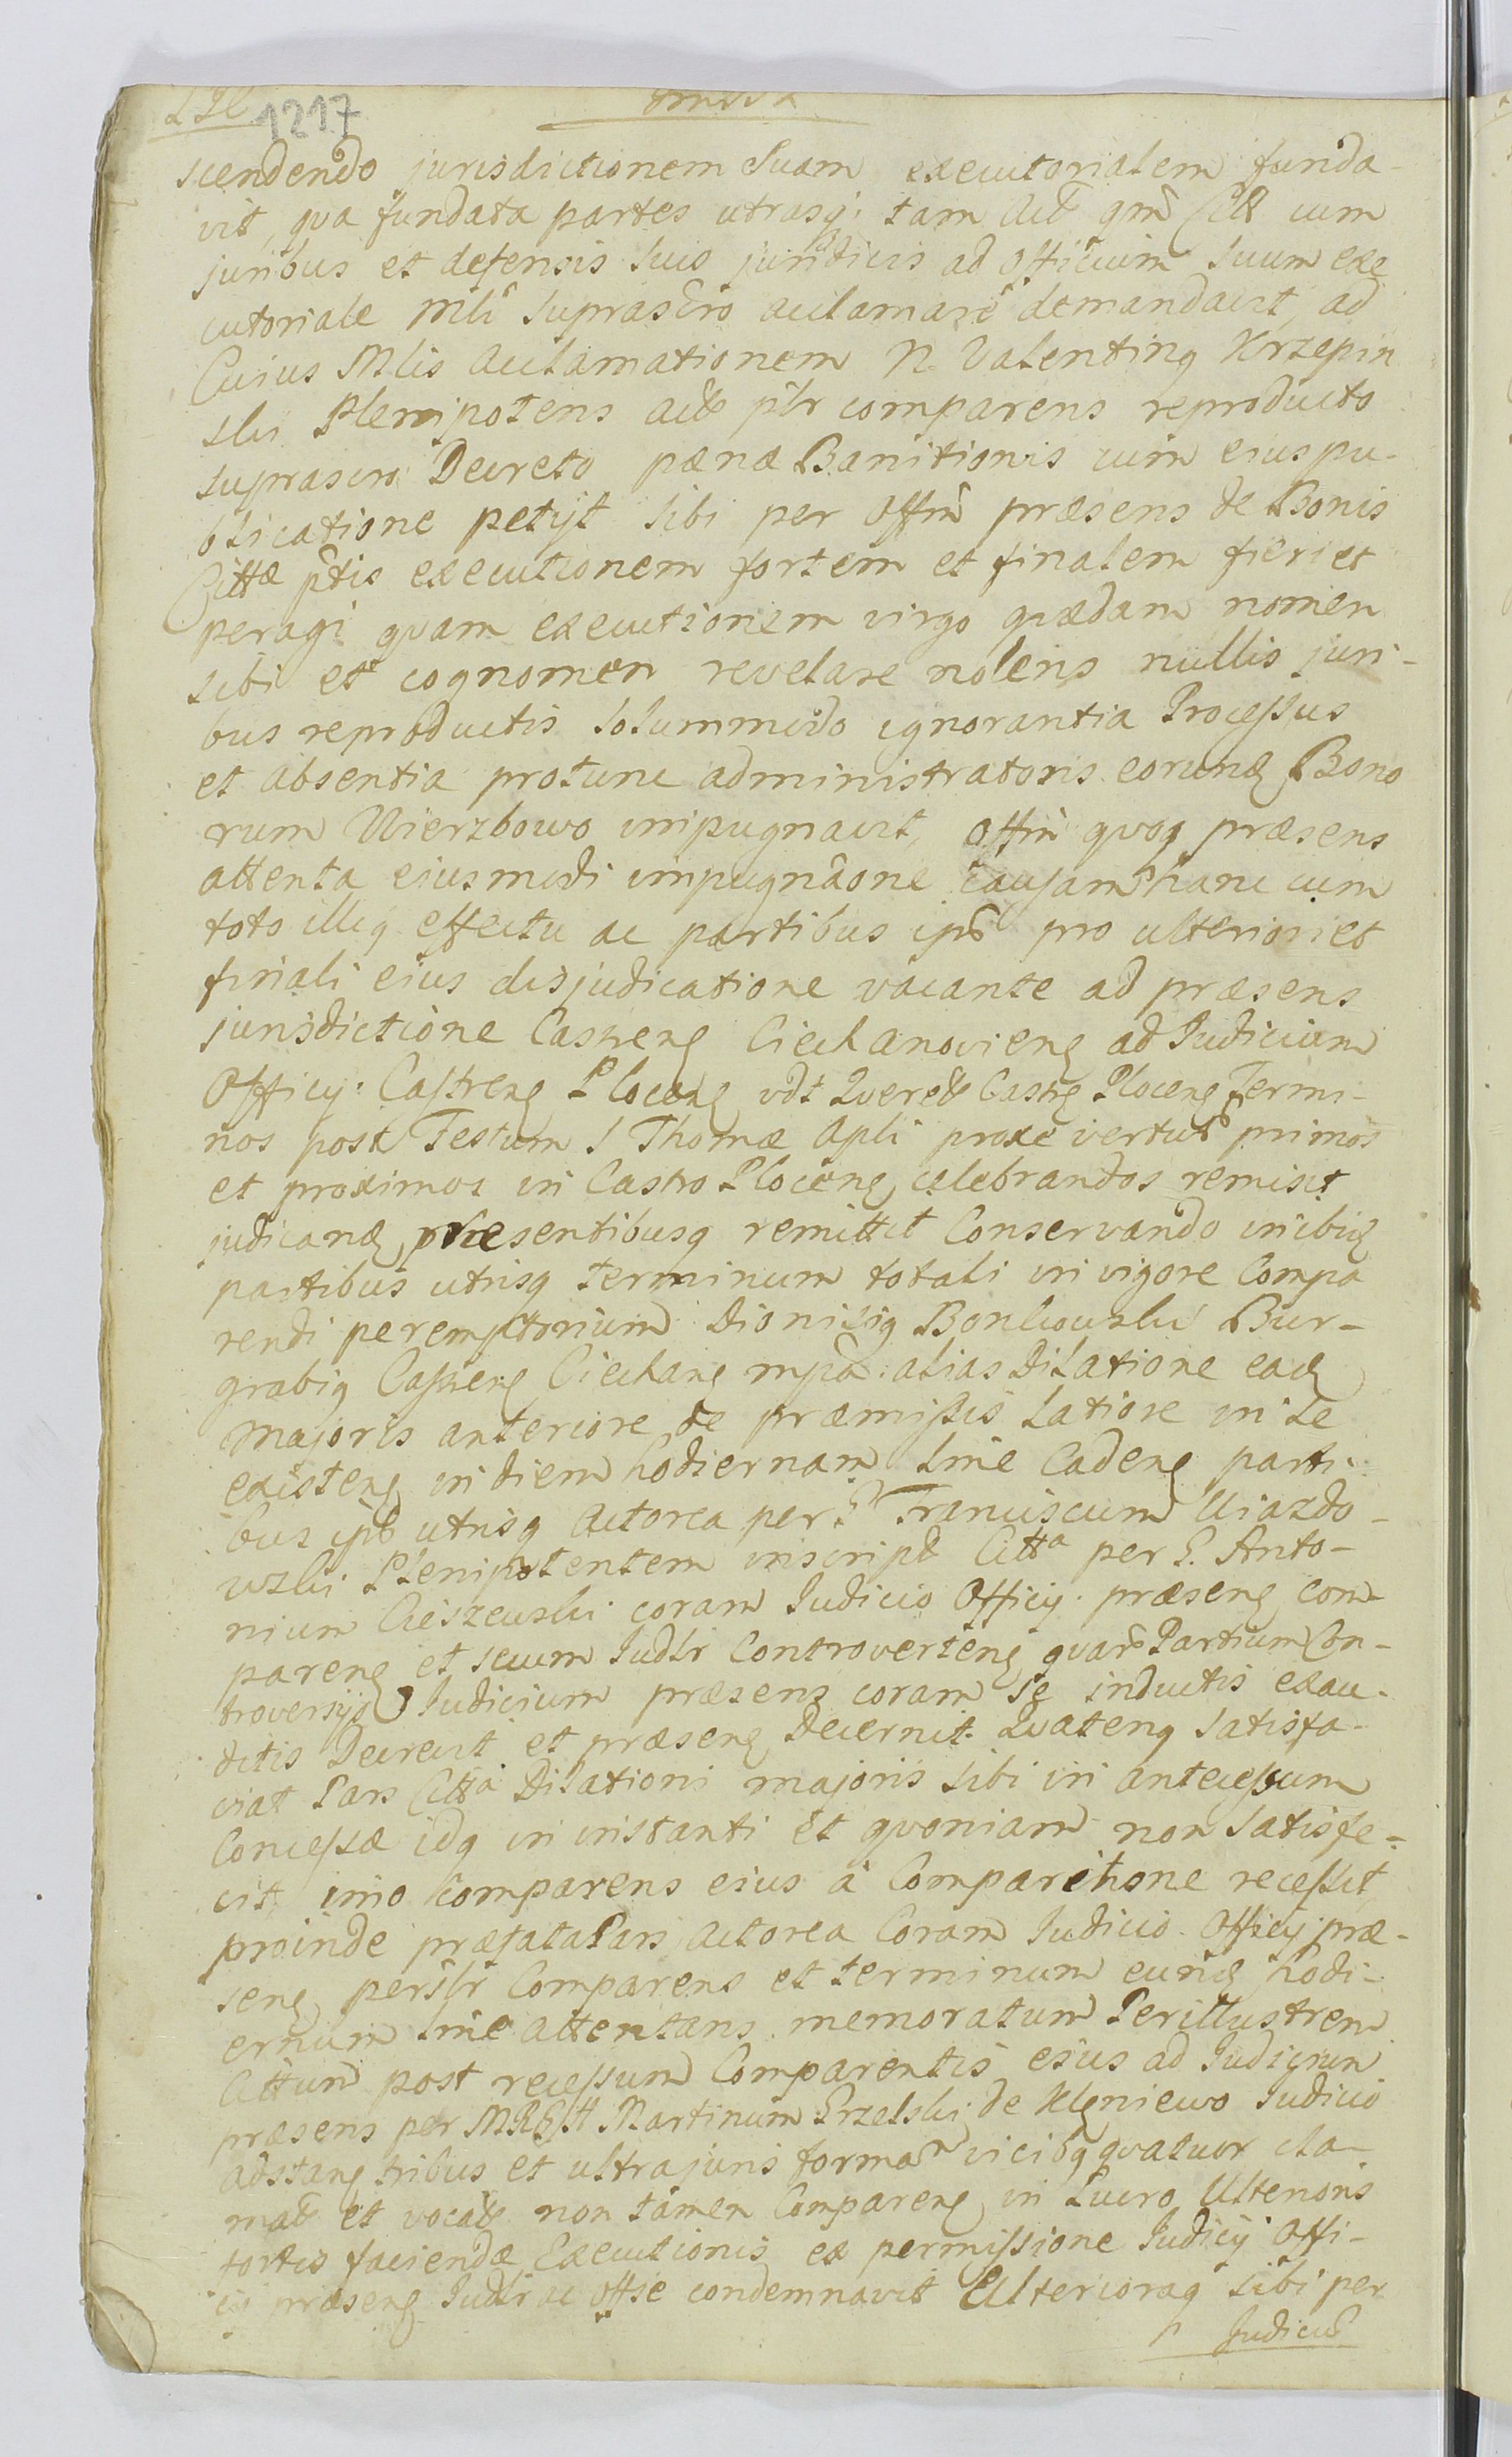 1217
scendendo jurisdictionem Suam executorialem funda-
vit, qua fundata partes utrasq; tam Act qm Citt cum
juribus et defensis suis juridicis ad Officium Suum exe
cutoriale Mli suprascro acclamare demandavit, ad
Cuius Mlis Acclamationem N. Valentinq Krzepin
ski Plenipotens act plr comparens reproducto
suprascro Decreto pænæ Banitionis cum eius pu-
blicatione petijt sibi per Offm præsens de Bonis
Cittæ ptis executionem fortem et finalem fieri et
peragi quam executionem virgo quædam nomen
sibi et cognomen revelare nolens nullis juri-
bus reproductis solummodo ignorantia Processus
et absentia protunc administratoris eorund Bono
rum Wierzbowo impugnavit, Offm quoq præsens
attenta eiusmodi impugnaone causam hanc cum
toto illiq effectu ac partibus ipis pro ulteriori et
finali eius disjudicatione vacante ad præsens
jurisdictione Castrens Ciechanoviens ad Judicium
Officij Castrens Plocens vdt Querel Castr Plocens Termi-
nos post Festum S Thomæ Apli proxe vertur primos
et proximos in Castro Plocens celebrandos remisit
judicand præsentibusq remittit Conservando inibiq
partibus utrisq terminum totali in vigore Compa
rendi peremptorium Dionisiq Bonkowski Bur-
grabiq Castrens Ciechans mpa. alias Dilatione ead
Majoris anteriore de præmissis Latiore in se
existens in diem hodiernam sme Cadens parti-
bus ipis utrisq Actorea per G Franciscum Uiazdo-
wski Plenipotentem inscript Citta per G. Anto-
nium Cieszewski coram Judicio Officij præsens com
parens et secum Judlr Controvertens quar Partium Con-
troversijs Judicium præsens coram se inductis exau-
ditis Decrevit et præsens Decernit. Quatenq satisfa-
ciat Pars Citta Dilationi majoris sibi in antecessum
Concessæ idq in instanti et quoniam non satisfe-
cit, imo comparens eius a Comparitione recessit
proinde præfata Pars Actorea Coram Judicio Officij præ-
sens perslr Comparens et terminum eund hodi-
ernum sme attentans memoratum Perillustrem
Cittum post recessum Comparentis eius ad Judicium
præsens per MRGłł Martinum Grzelski de Kleniewo Judicio
adstans tribus et ultra juris forma vicibq quatuor cla-
mat et vocat non tamen Comparens in Lucro Ulterioris
fortis faciendæ Executionis ex permissione Judicij Offi-
cij præsens Judlr ac Offse condemnavit Ulterioraq sibi per
Judiciu